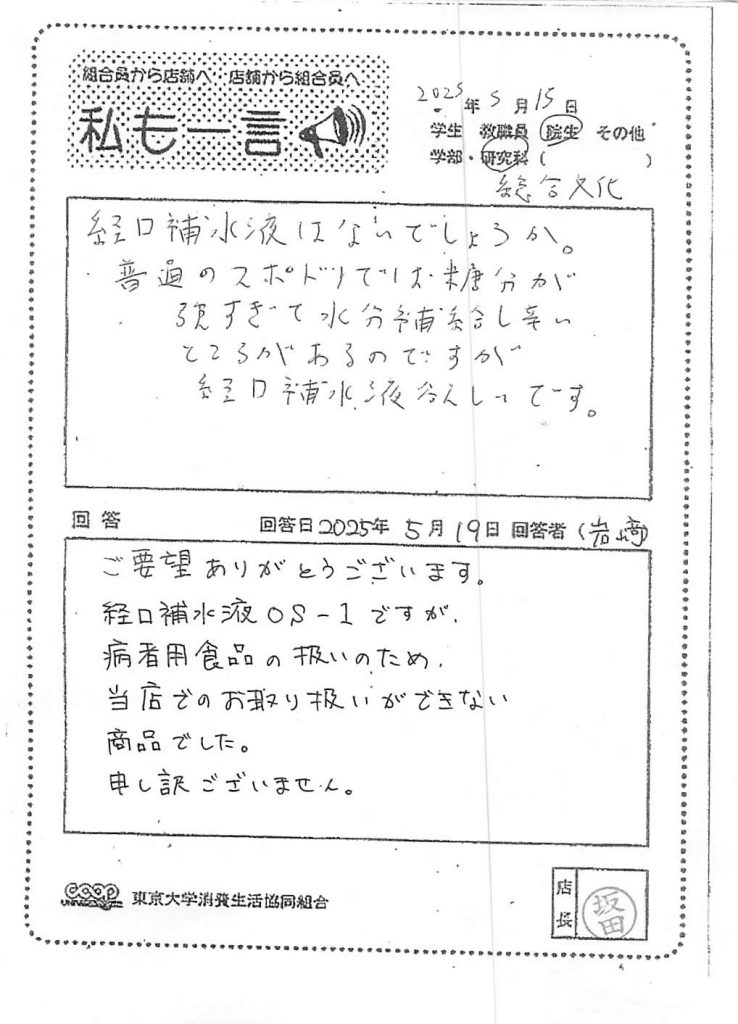 組合員から店舗へ・店舗から組合員へ
私も一言
2025年5月15日
学生 教職員 院生 その他
学部・研究科( )
総合文化
経口補水液はないでしょうか。
普通のスポドリでは糖分が
強すぎて水分補給し辛い
ところがあるのですが
経口補水液欲しいです。
回答 回答日2025年5月19日 回答者(岩崎)
ご要望ありがとうございます。
経口補水液OS-1ですが、
病者用食品の扱いのため、
当店でのお取り扱いができない
商品でした。
申し訳ございません。
coop
東京大学消費生活協同組合
店長
坂田